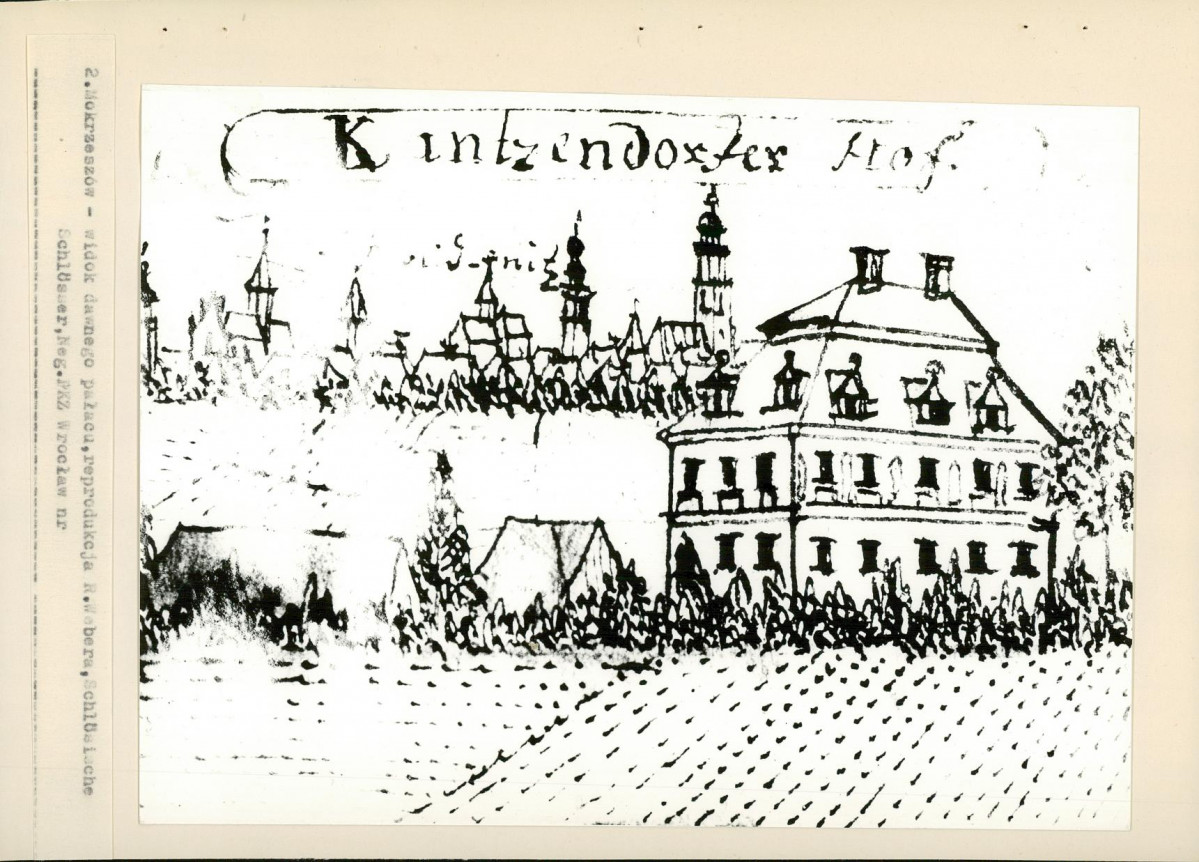 Kintzendorfer Hof.
2.Mokrzeszów - widok dawnego pałacu,reprodukcja R.Webera,Schlösische
Schlösser,Neg.PKZ Wrocław nr